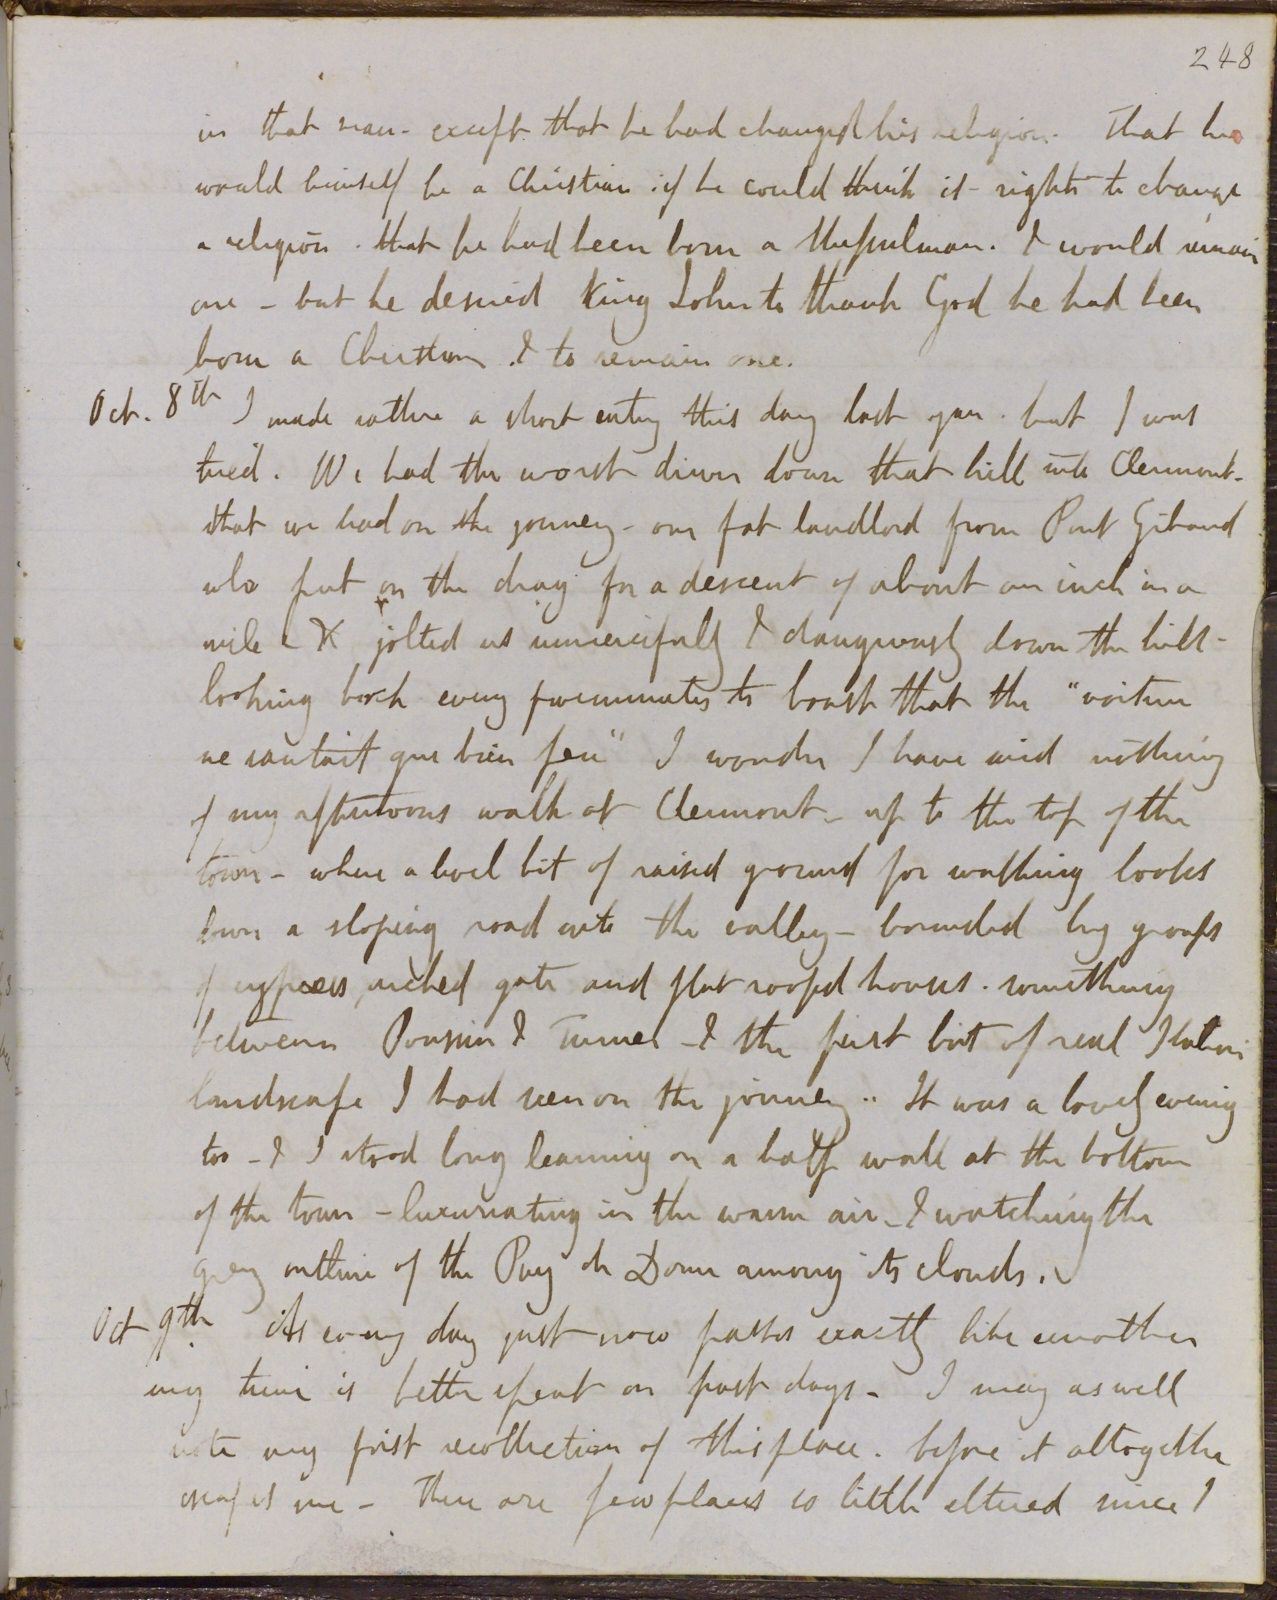 248
in that man - except that he had changed his religion. That he
would himself be a Christian if he could think it right to change
a religion. that he had been born a Mussulman. & would remain
one - but he desired King John to thank God he had been
born a Christian & to remain one.
Oct. 8th I made rather a short entry this day last year. but I was
tired. We had the worst driver down that hill into Clermont -
that we had on the journey - our fat landlord from Pont Gibaud
who put on the drag for a descent of about an inch in a
mile & jolted us unmercifully & dangerously down the hill -
looking back every five minutes to boast that the "voiture
ne sautait que bien peu" I wonder I have said nothing
of my afternoons walk at Clermont - up to the top of the
town - where a level bit of raised ground for walking looks
down a sloping road into the valley - bounded by groups
of cypress, arched gate and flat roofed houses. something
between Poussin & Turner - & the first bit of real Italian
landscape I had seen on the journey.. It was a lovely evening
too - & I stood long leaning on a half wall at the bottom
of the town - luxuriating in the warm air - & watching the
grey outline of the Puy de Dome among its clouds.
Oct 9th. As every day just now passes exactly like another
my time is better spent on past days - I may as well
note my first recollection of this place. before it altogether
escapes me - There are few places so little altered since I